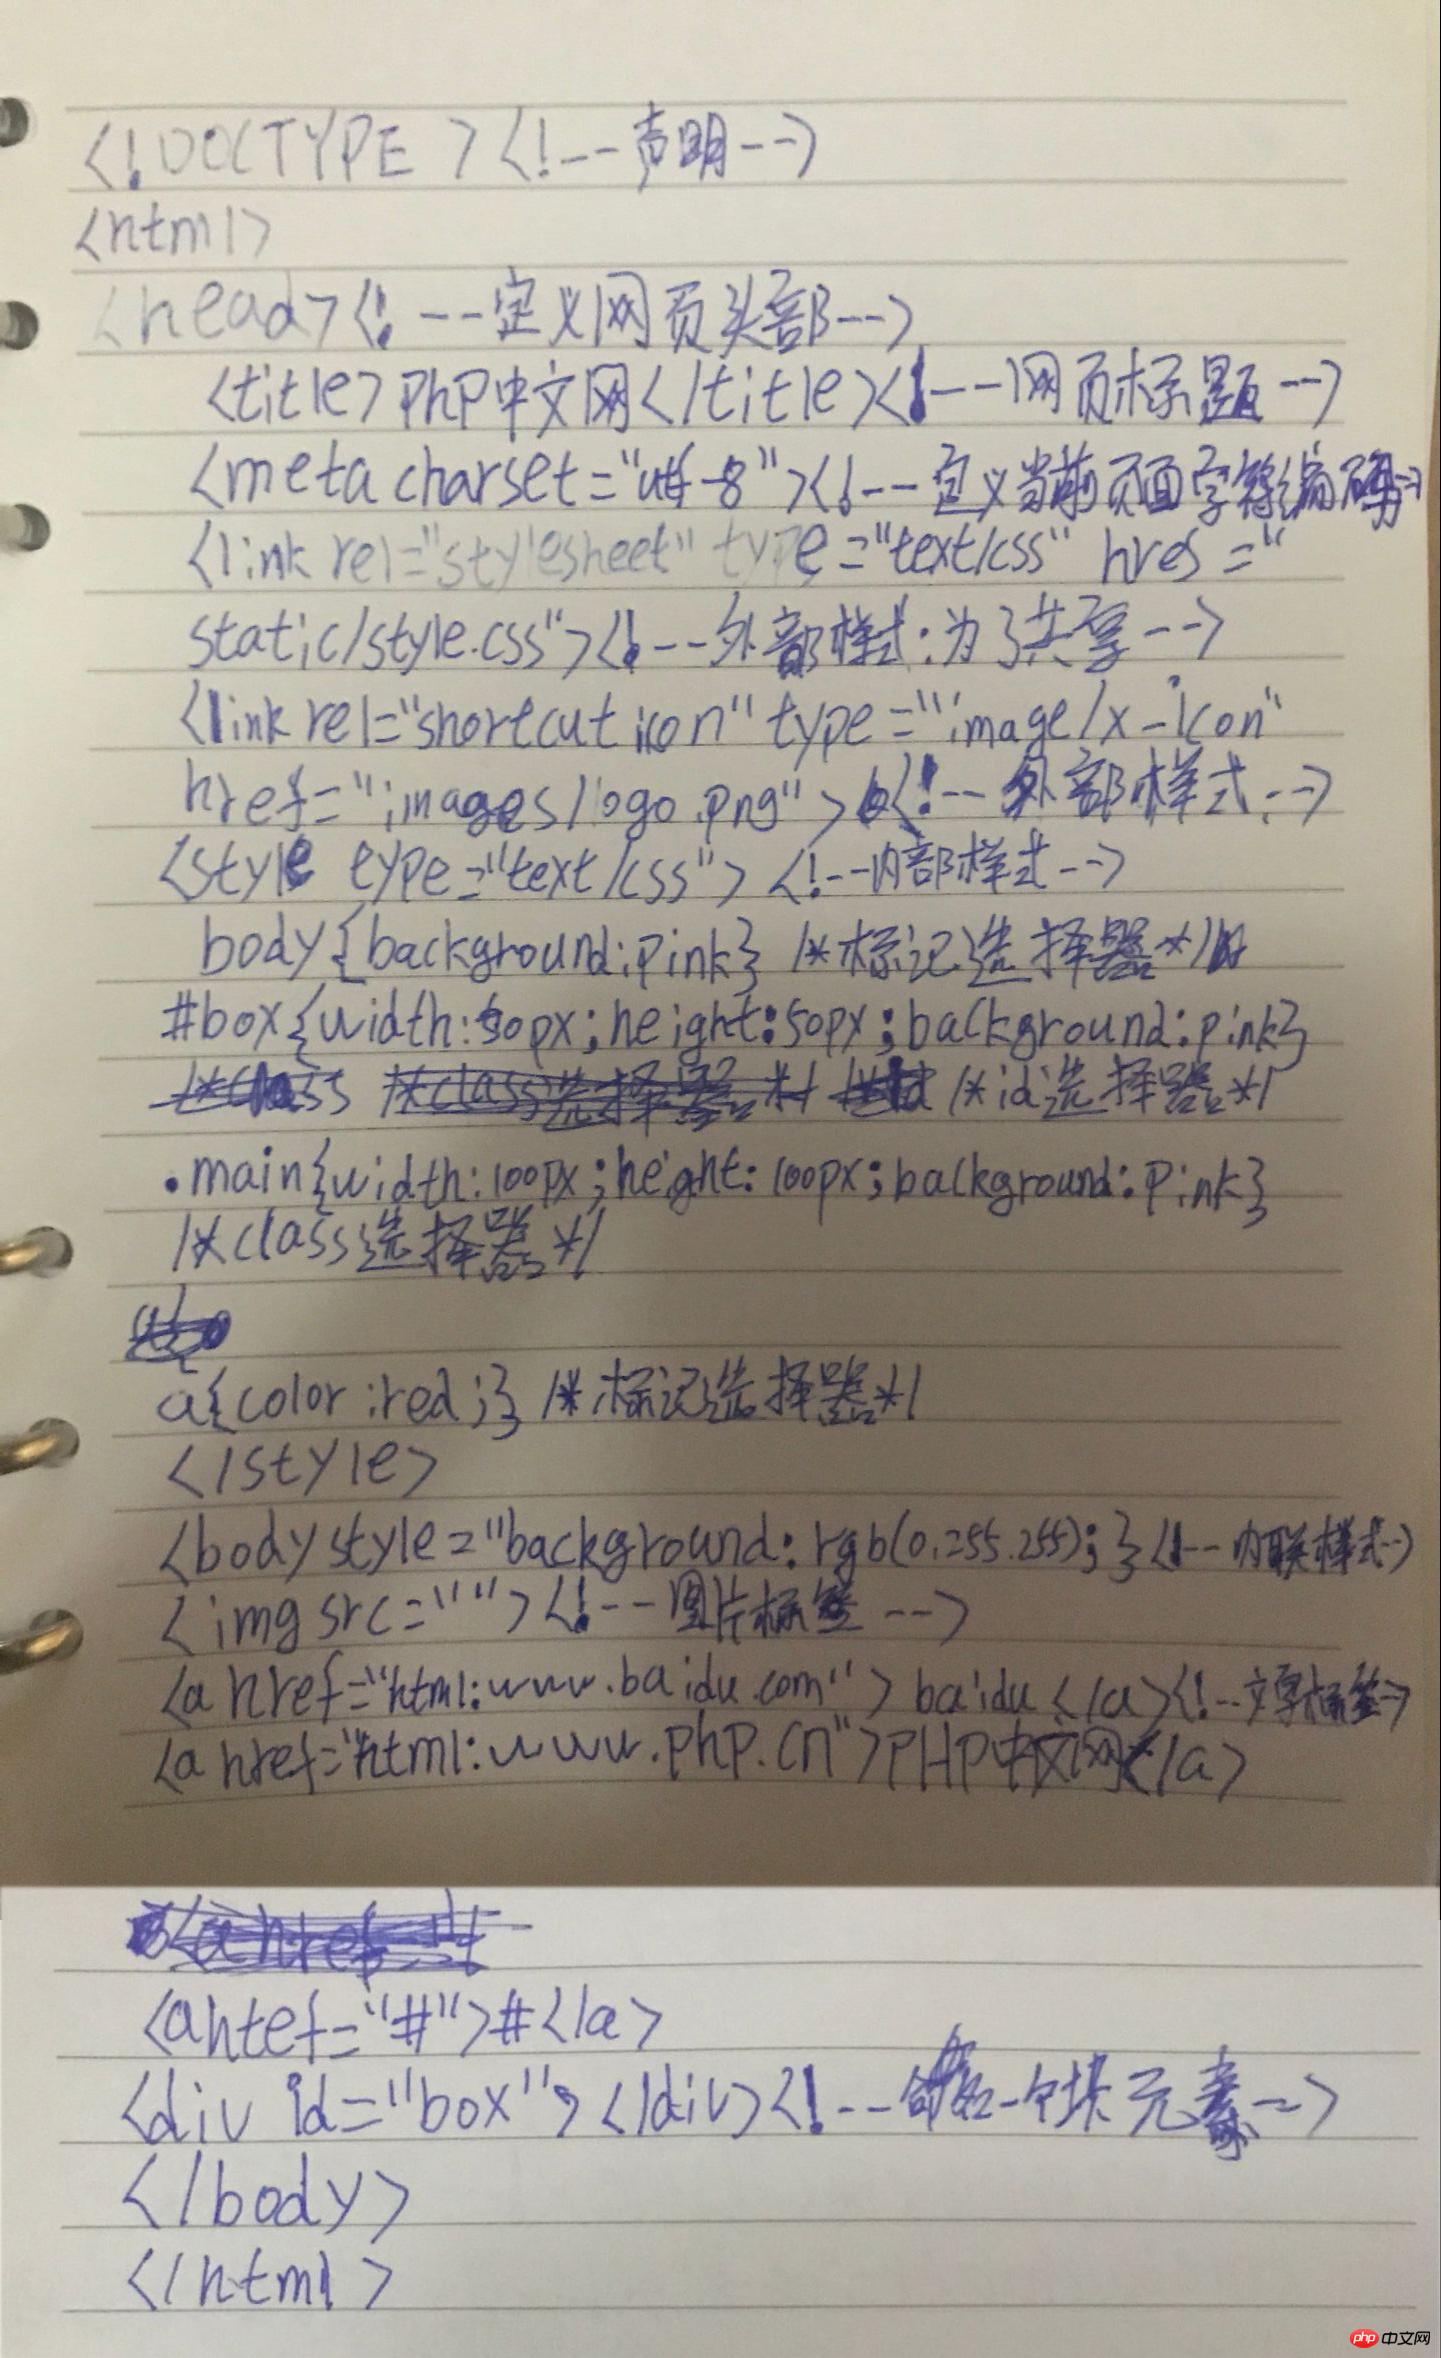 <!DOCTYPE><!--声明-->
<html>
<head><!--定义网页头部-->
<title>PhP中文网</title><!--网页标题-->
<meta charset="utf-8"><!--定义当前页面字符编码-->
<link rel="stylesheet" type="text/css" href="
static/style.css"><!--外部样式:为了共享-->
<link rel="shortcut icon" type="image/x-icon"
href="images/logo.png"><!--外部样式-->
<style type="text/css"><!--内部样式-->
body{background:pink} /*标记选择器*/
#box{width:50px;height:50px;background:pink}
/*id选择器*/
.main{width:100px;height:100px;background:pink}
/*class选择器*/
a{color:red;} /*标记选择器*/
</style>
<body style="background:rgb(0.255.255);}<!--内联样式-->
<img src=""><!--图片标签-->
<a href="html:www.baidu.com">baidu</a><!--文字标签-->
<a href="html:www.php.cn">PHP中文网</a>
<a htef="#">#</a>
<div id="box"></div><!--命名一个块元素-->
</body>
</html>
php 中文网